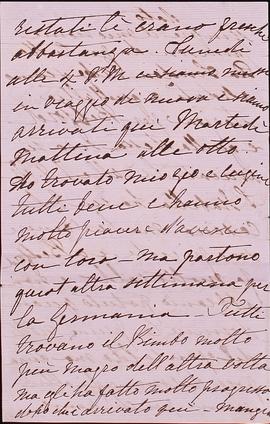 restati li erano freschi
abbastanza. Lunedi
alle 2 P.M. ci siamo messi
in viaggio di nuovo e siamo
arrivati qui Martedi
Mattina alle otto
Ho trovato mio zio e cugine
tutti bene e hanno
molto piacere d'averci
con loro - ma partono
quest'altra settimana per
la Germania. Tutti
trovano il Bimbo molto
più magro dell'altra volta
ma egli ha fatto molto progresso
dopo che arrivato qui - mangia